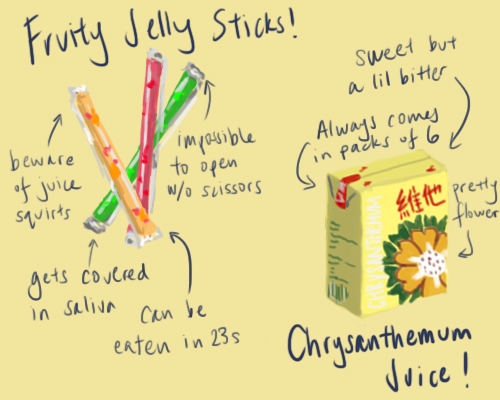 Fruity Jelly Sticks!
beware
of juice
squirts
impossible
to open
w/o scissors
gets covered
in saliva
can be
eaten in 23s
sweet but
a lil bitter
Always comes
in packs of 6
pretty
flower
維他
CHRYSANTHEMUM
Chrysanthemum
Juice!